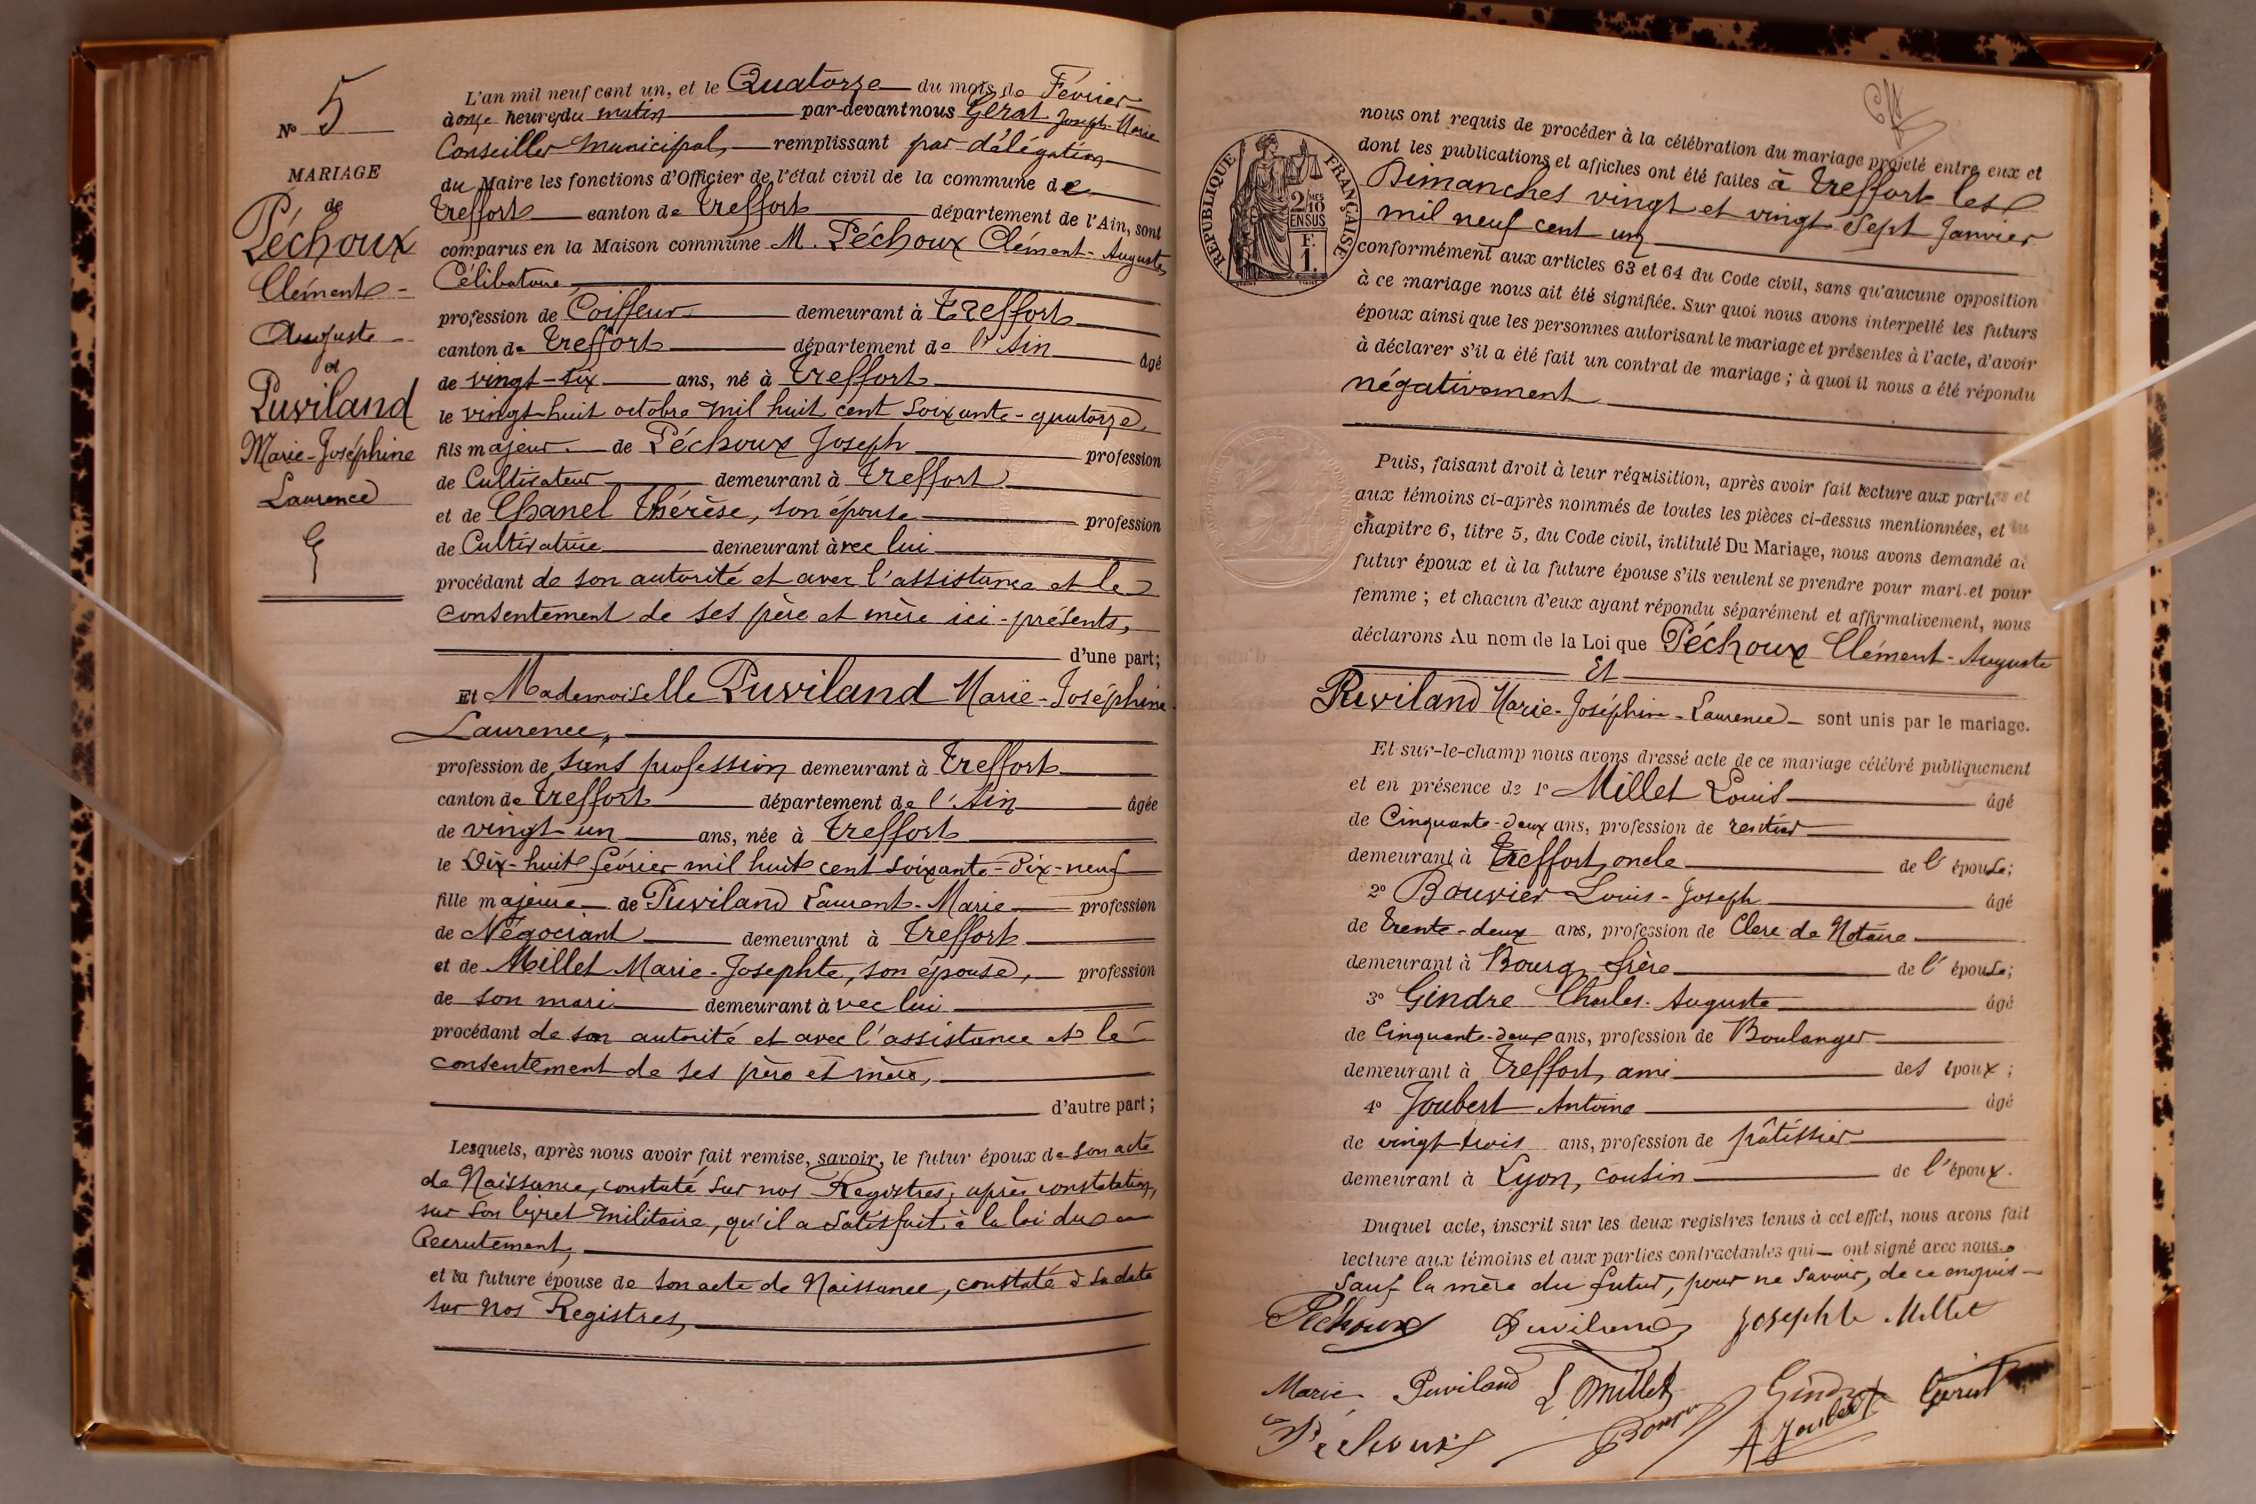 N° 5
MARIAGE
de
Péchoux
Clément-
Auguste
et
Puviland
Marie-Joséphine
Laurence
L'an mil neuf cent un, et le Quatorze du mois de Février
à onze heures du matin par-devant nous Gérat Joseph-Marie
Conseiller Municipal, remplissant par délégation
du Maire les fonctions d'Officier de l'état civil de la commune de
Treffort canton de Treffort département de l'Ain, sont
comparus en la Maison commune M. Péchoux Clément-Auguste,
Célibataire,
profession de Coiffeur demeurant à Treffort
canton de Treffort département de l'Ain âgé
de vingt-six ans, né à Treffort
le vingt-huit octobre mil huit cent soixante-quatorze,
fils majeur de Péchoux Joseph profession
de Cultivateur demeurant à Treffort
et de Chanel Thérèse, son épouse profession
de Cultivatrice demeurant avec lui
procédant de son autorité et avec l'assistance et le
consentement de ses père et mère ici-présents,
d'une part;
Et Mademoiselle Puviland Marie-Joséphine-
Laurence,
profession de sans profession demeurant à Treffort
canton de Treffort département de l'Ain âgée
de vingt-un ans, née à Treffort
le Dix-huit février mil huit cent soixante-dix-neuf
fille majeure de Puviland Laurent-Marie profession
de Négociant demeurant à Treffort
et de Millet Marie-Josephte, son épouse, profession
de son mari demeurant avec lui
procédant de son autorité et avec l'assistance et le
consentement de ses père et mère,
d'autre part;
Lesquels, après nous avoir fait remise, savoir, le futur époux de son acte
de Naissance, constaté sur nos Registres, après constatation,
sur son livret militaire, qu'il a satisfait à la loi du
Recrutement,
et la future épouse de son acte de Naissance, constaté à sa date
sur nos Registres,
RÉPUBLIQUE FRANÇAISE
2/10 MES
EN SUS
F.
1.
nous ont requis de procéder à la célébration du mariage projeté entre eux et
dont les publications et affiches ont été faites à Treffort les
Dimanches vingt et vingt-Sept Janvier
mil neuf cent un
conformément aux articles 63 et 64 du Code civil, sans qu'aucune opposition
à ce mariage nous ait été signifiée. Sur quoi nous avons interpellé les futurs
époux ainsi que les personnes autorisant le mariage et présentes à l'acte, d'avoir
à déclarer s'il a été fait un contrat de mariage; à quoi il nous a été répondu
négativement
Puis, faisant droit à leur réquisition, après avoir fait lecture aux parties et
aux témoins ci-après nommés de toutes les pièces ci-dessus mentionnées, et du
chapitre 6, titre 5, du Code civil, intitulé Du Mariage, nous avons demandé au
futur époux et à la future épouse s'ils veulent se prendre pour mari et pour
femme; et chacun d'eux ayant répondu séparément et affirmativement, nous
déclarons Au nom de la Loi que Péchoux Clément-Auguste
Et
Puviland Marie-Joséphine-Laurence sont unis par le mariage.
Et sur-le-champ nous avons dressé acte de ce mariage célébré publiquement
et en présence de 1° Millet Louis âgé
de Cinquante-deux ans, profession de rentier
demeurant à Treffort, oncle de l'épouse;
2° Bouvier Louis-Joseph âgé
de trente-deux ans, profession de Clerc de Notaire
demeurant à Bourg, frère de l'épouse;
3° Gindre Charles-Auguste âgé
de Cinquante-deux ans, profession de Boulanger
demeurant à Treffort, ami des époux;
4° Joubert Antoine âgé
de vingt-trois ans, profession de pâtissier
demeurant à Lyon, cousin de l'époux.
Duquel acte, inscrit sur les deux registres tenus à cet effet, nous avons fait
lecture aux témoins et aux parties contractantes qui ont signé avec nous
sauf la mère du futur, pour ne savoir, de ce enquis
Péchoux Puviland Josephte Millet
Marie Puviland L Millet Gindre Gérat
Péchoux A Joubert